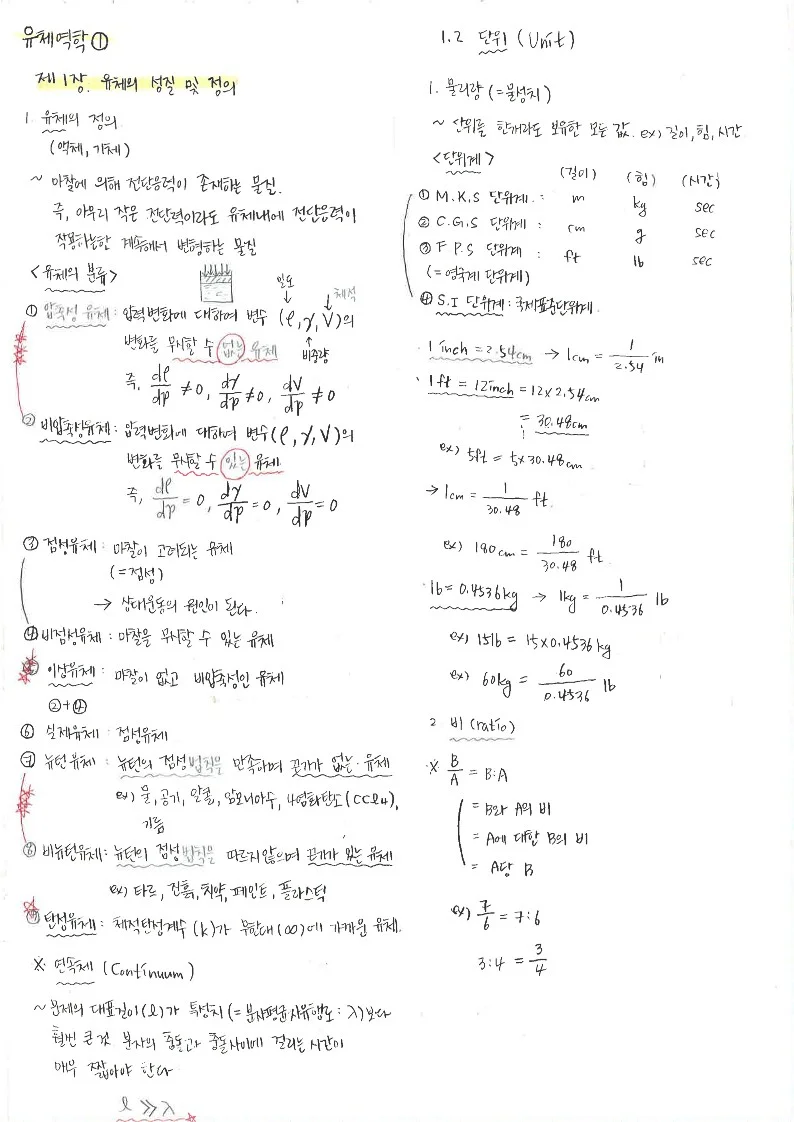 유체역학 ①
제1장. 유체의 성질 및 정의
1. 유체의 정의
(액체, 기체)
~ 마찰에 의해 전단응력이 존재하는 물질.
즉, 아무리 작은 전단력이라도 유체내에 전단응력이
작용하는한 계속해서 변형하는 물질
<유체의 분류>
밀도
체적
① 압축성 유체 : 압력변화에 대하여 변수 (ρ, γ, V)의
변화를 무시할 수 없는 유체
비중량
즉, dρ/dp ≠ 0, dγ/dp ≠ 0, dV/dp ≠ 0
② 비압축성유체 : 압력변화에 대하여 변수(ρ, γ, V)의
변화를 무시할 수 있는 유체.
즉, dρ/dp = 0, dγ/dp = 0, dV/dp = 0
③ 점성유체 : 마찰이 고려되는 유체
(=점성)
→ 상대운동의 원인이 된다.
④ 비점성유체 : 마찰을 무시할 수 있는 유체
⑤ 이상유체 : 마찰이 없고 비압축성인 유체
②+④
⑥ 실제유체 : 점성유체
⑦ 뉴턴유체 : 뉴턴의 점성법칙을 만족하며 끈기가 없는 유체
ex) 물, 공기, 알콜, 암모니아수, 4염화탄소(CCl4),
기름
⑧ 비뉴턴유체 : 뉴턴의 점성법칙을 따르지않으며 끈기가 있는 유체
ex) 타르, 진흙, 치약, 페인트, 플라스틱
탄성유체 : 체적탄성계수 (k)가 무한대(∞)에 가까운 유체.
※ 연속체 (Continuum)
~ 문제의 대표길이(l)가 특성치(=분자평균자유행로 : λ)보다
훨씬 큰것. 분자의 충돌과 충돌사이에 걸리는 시간이
매우 짧아야 한다
l ≫ λ
1.2 단위 (Unit)
1. 물리량 (=물성치)
~ 단위를 한개라도 보유한 모든 값. ex) 길이, 힘, 시간
<단위계> (길이) (힘) (시간)
① M.K.S 단위계 : m kg sec
② C.G.S 단위계 : cm g sec
③ F.P.S 단위계 : ft lb sec
(=영국계 단위계)
④ S.I 단위계 : 국제표준단위계.
1 inch = 2.54cm → 1cm = 1/2.54 in
1ft = 12inch = 12×2.54cm
= 30.48cm
ex) 5ft = 5×30.48cm
→ 1cm = 1/30.48 ft.
ex) 180cm = 180/30.48 ft
lb = 0.4536kg → 1kg = 1/0.4536 lb
ex) 15lb = 15×0.4536kg
ex) 60kg = 60/0.4536 lb
2. 비 (ratio)
※ B/A = B:A
= B와 A의 비
= A에 대한 B의 비
= A당 B
ex) 7/6 = 7:6
3:4 = 3/4